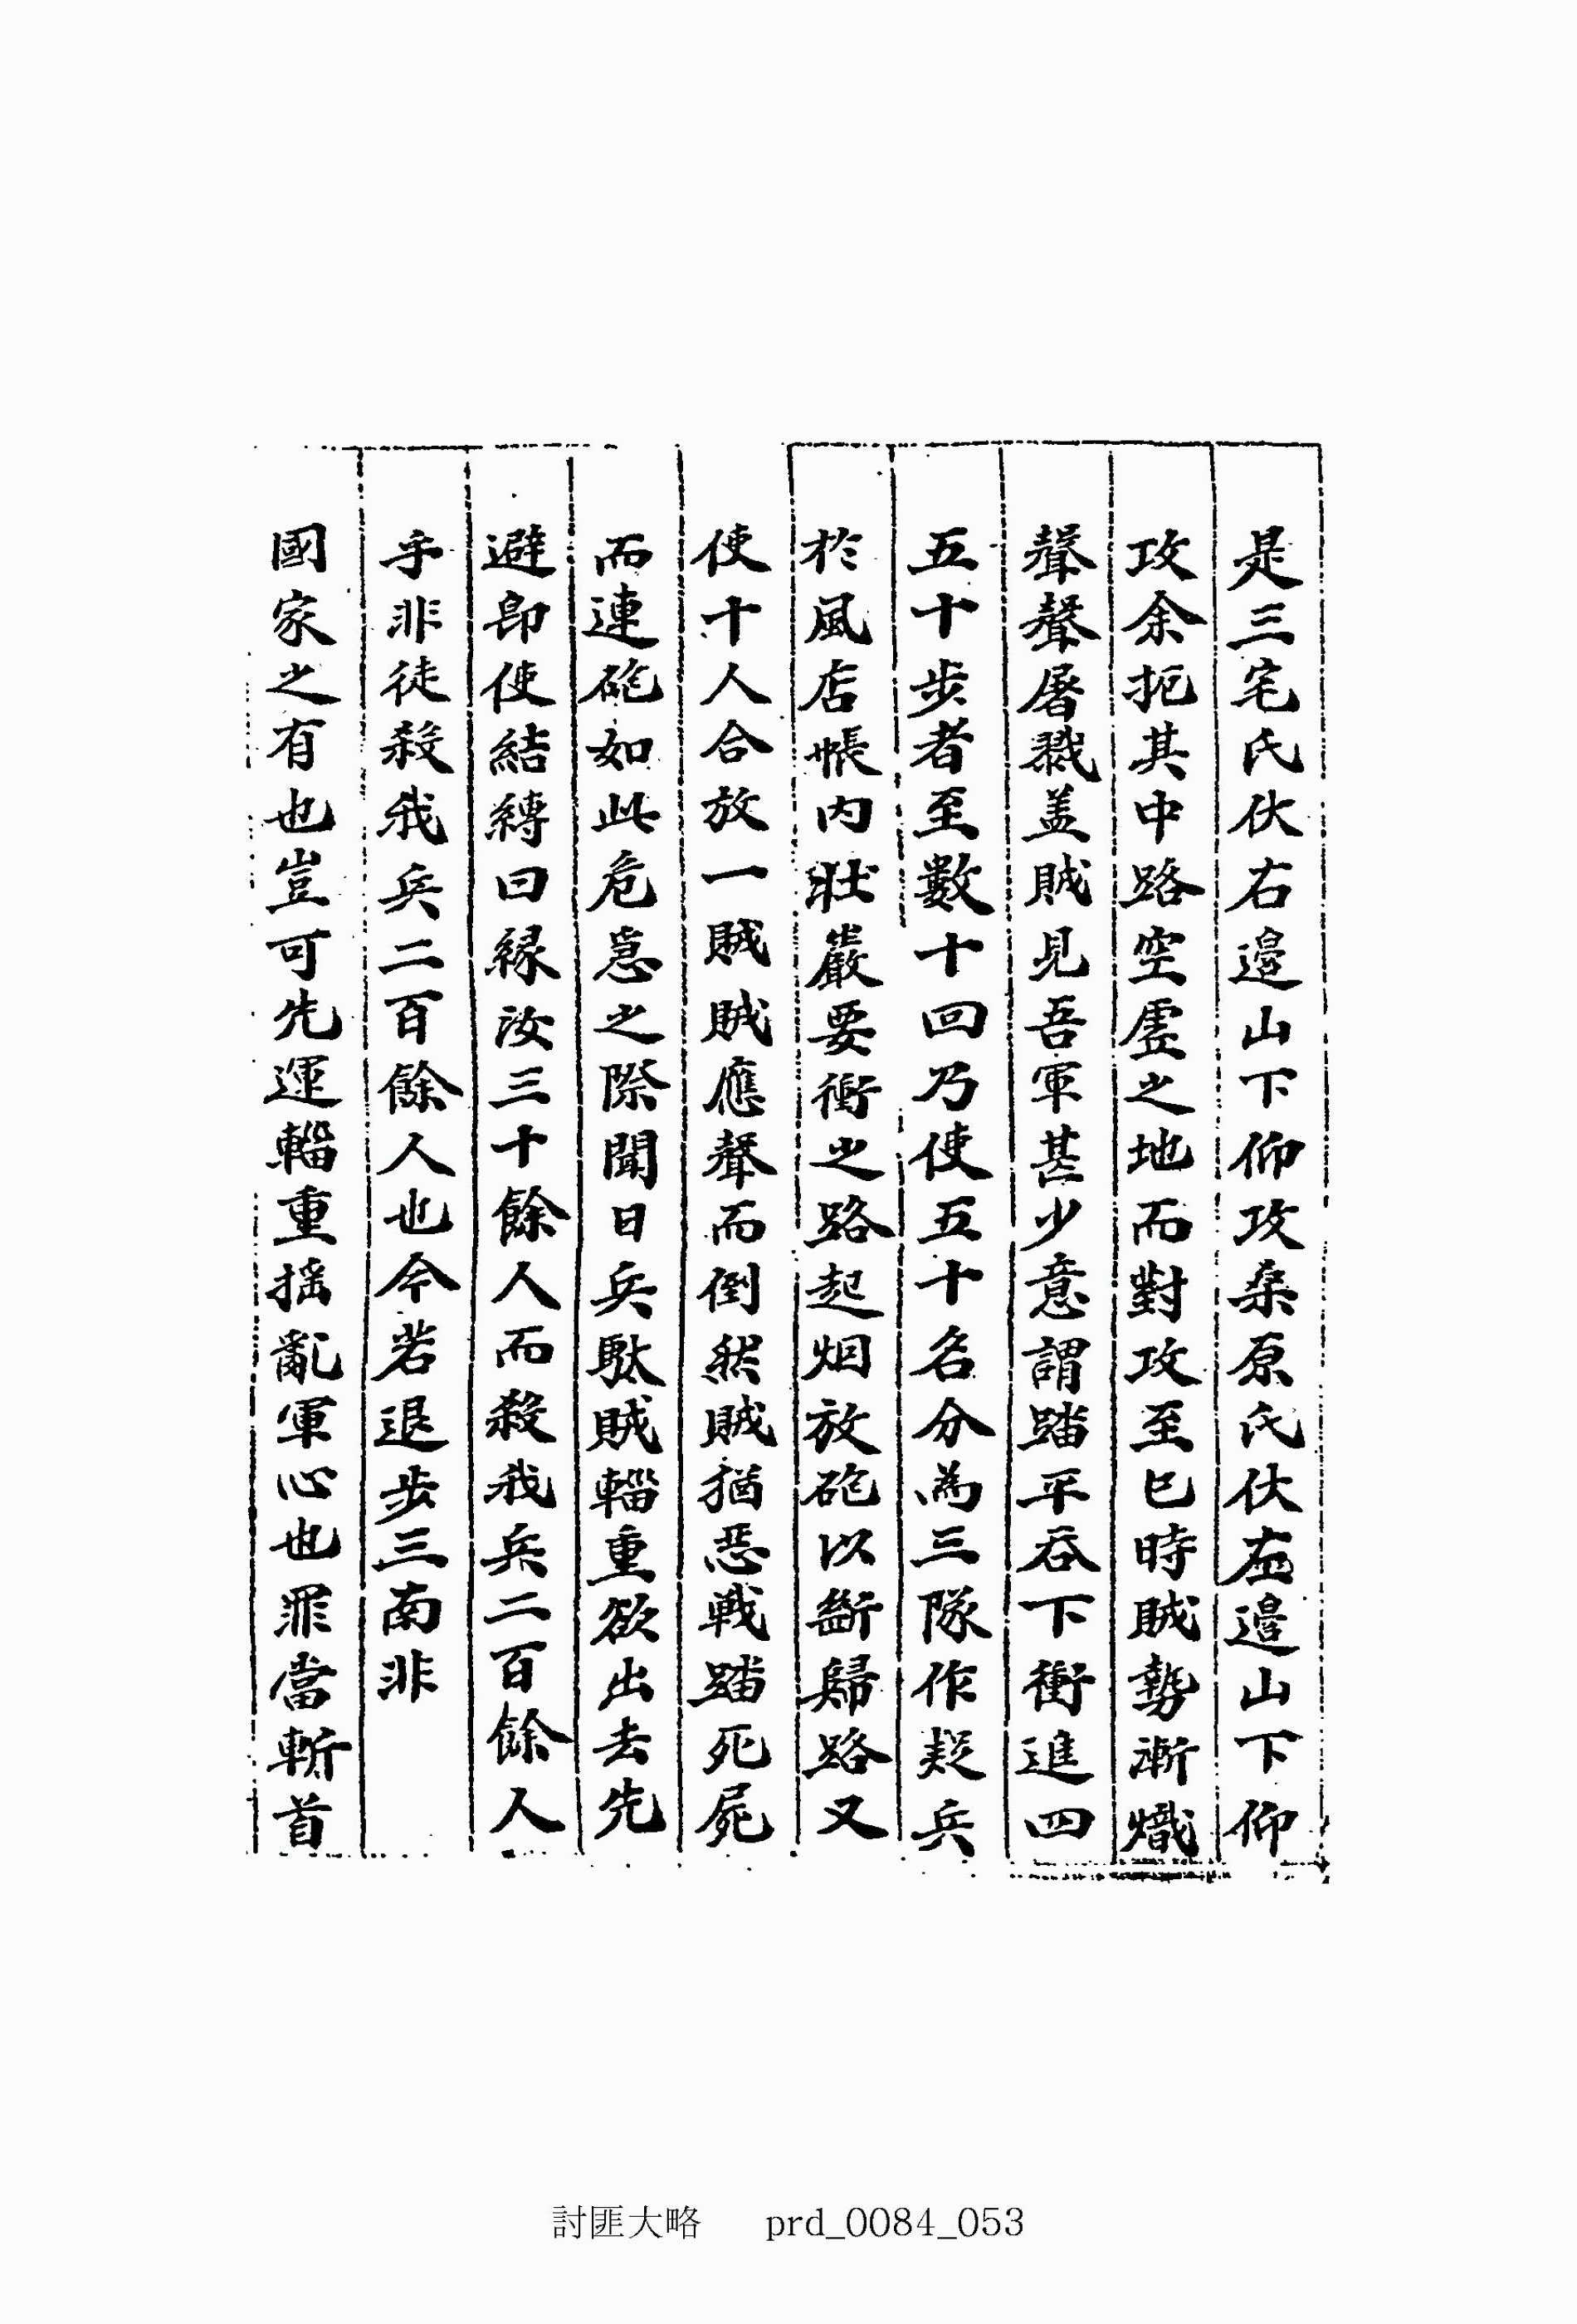 是三宅氏伏右邉山下仰攻桒原氏伏左邉山下仰
攻余扼其中路空虛之地而對攻至巳時賊勢漸熾
聲聲屠戮盖賊見吾軍甚少意謂踏平吞下衝進四
五十步者至數十回乃使五十名分為三隊作疑兵
於風店帳內壯嚴要衝之路起烟放砲以斷歸路又
使十人合放一賊賊應聲而倒然賊猶惡戰踏死屍
而連砲如此危急之際聞日兵駄賊輜重欲出去先
避卽使結縛曰緣汝三十餘人而殺我兵二百餘人
乎非徒殺我兵二百餘人也今若退步三南非
國家之有也豈可先運輜重搖亂軍心也罪當斬首
討匪大略 prd_0084_053